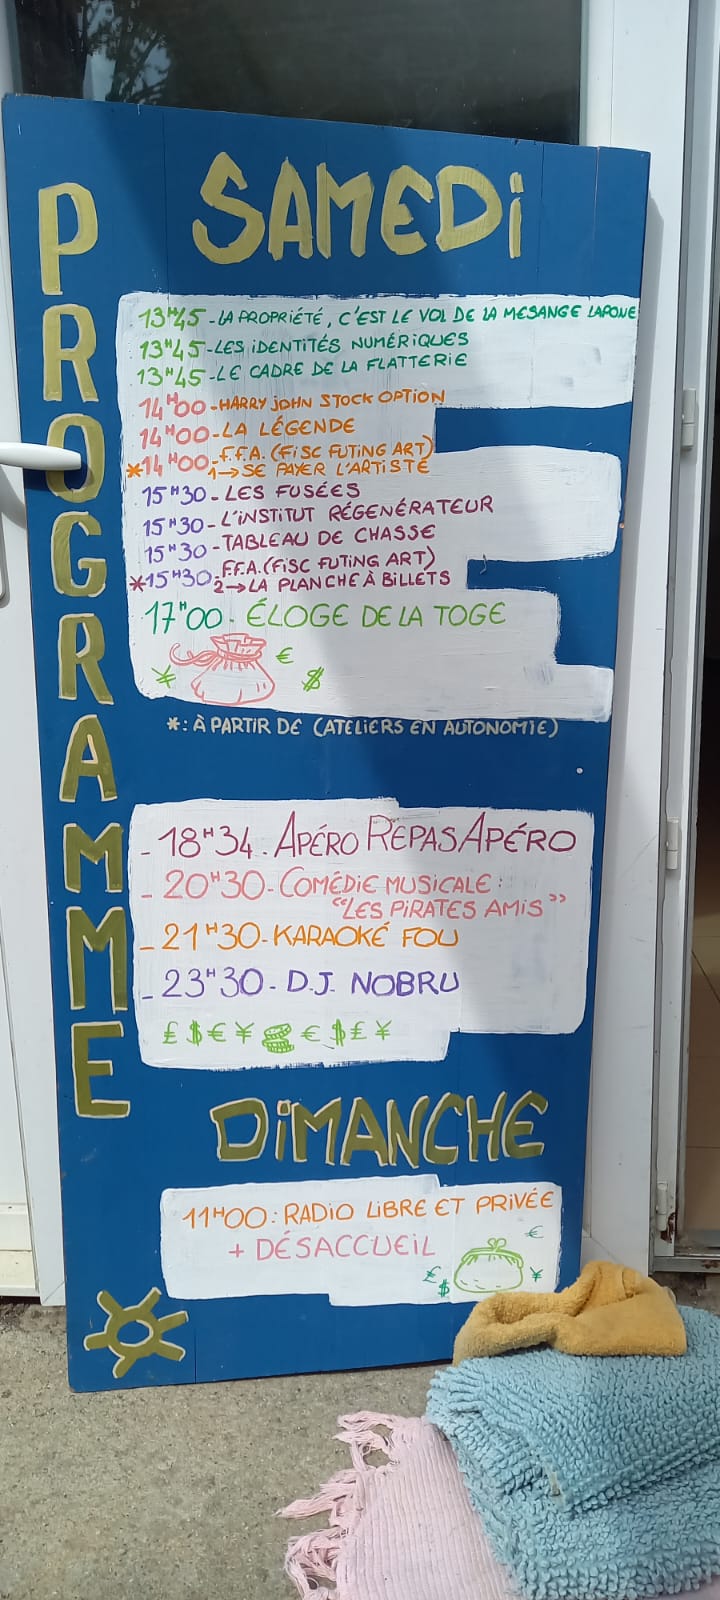 PROGRAMME
SAMEDI
13H45-LA PROPRIÉTÉ, C'EST LE VOL DE LA MESANGE LAPONE
13H45-LES IDENTITÉS NUMÉRIQUES
13H45-LE CADRE DE LA FLATTERIE
14H00-HARRY JOHN STOCK OPTION
14H00-LA LÉGENDE
*14H00-F.F.A. (FISC FUTING ART)
1→SE PAYER L'ARTISTE
15H30-LES FUSÉES
15H30-L'INSTITUT RÉGÉNÉRATEUR
15H30-TABLEAU DE CHASSE
*15H30-F.F.A. (FISC FUTING ART)
2→LA PLANCHE À BILLETS
17H00-ÉLOGE DE LA TOGE
¥ € $
*: À PARTIR DE (ATELIERS EN AUTONOMIE)
- 18H34-APÉRO REPAS APÉRO
- 20H30-COMÉDIE MUSICALE :
"LES PIRATES AMIS"
- 21H30-KARAOKÉ FOU
- 23H30-D.J. NOBRU
£ $ € ¥ € $ £ ¥
DIMANCHE
11H00: RADIO LIBRE ET PRIVÉE
+ DÉSACCUEIL
€
£ $ ¥